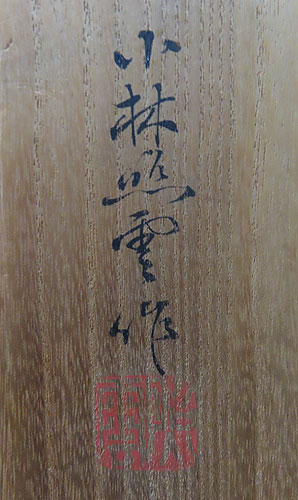 小林照雲作